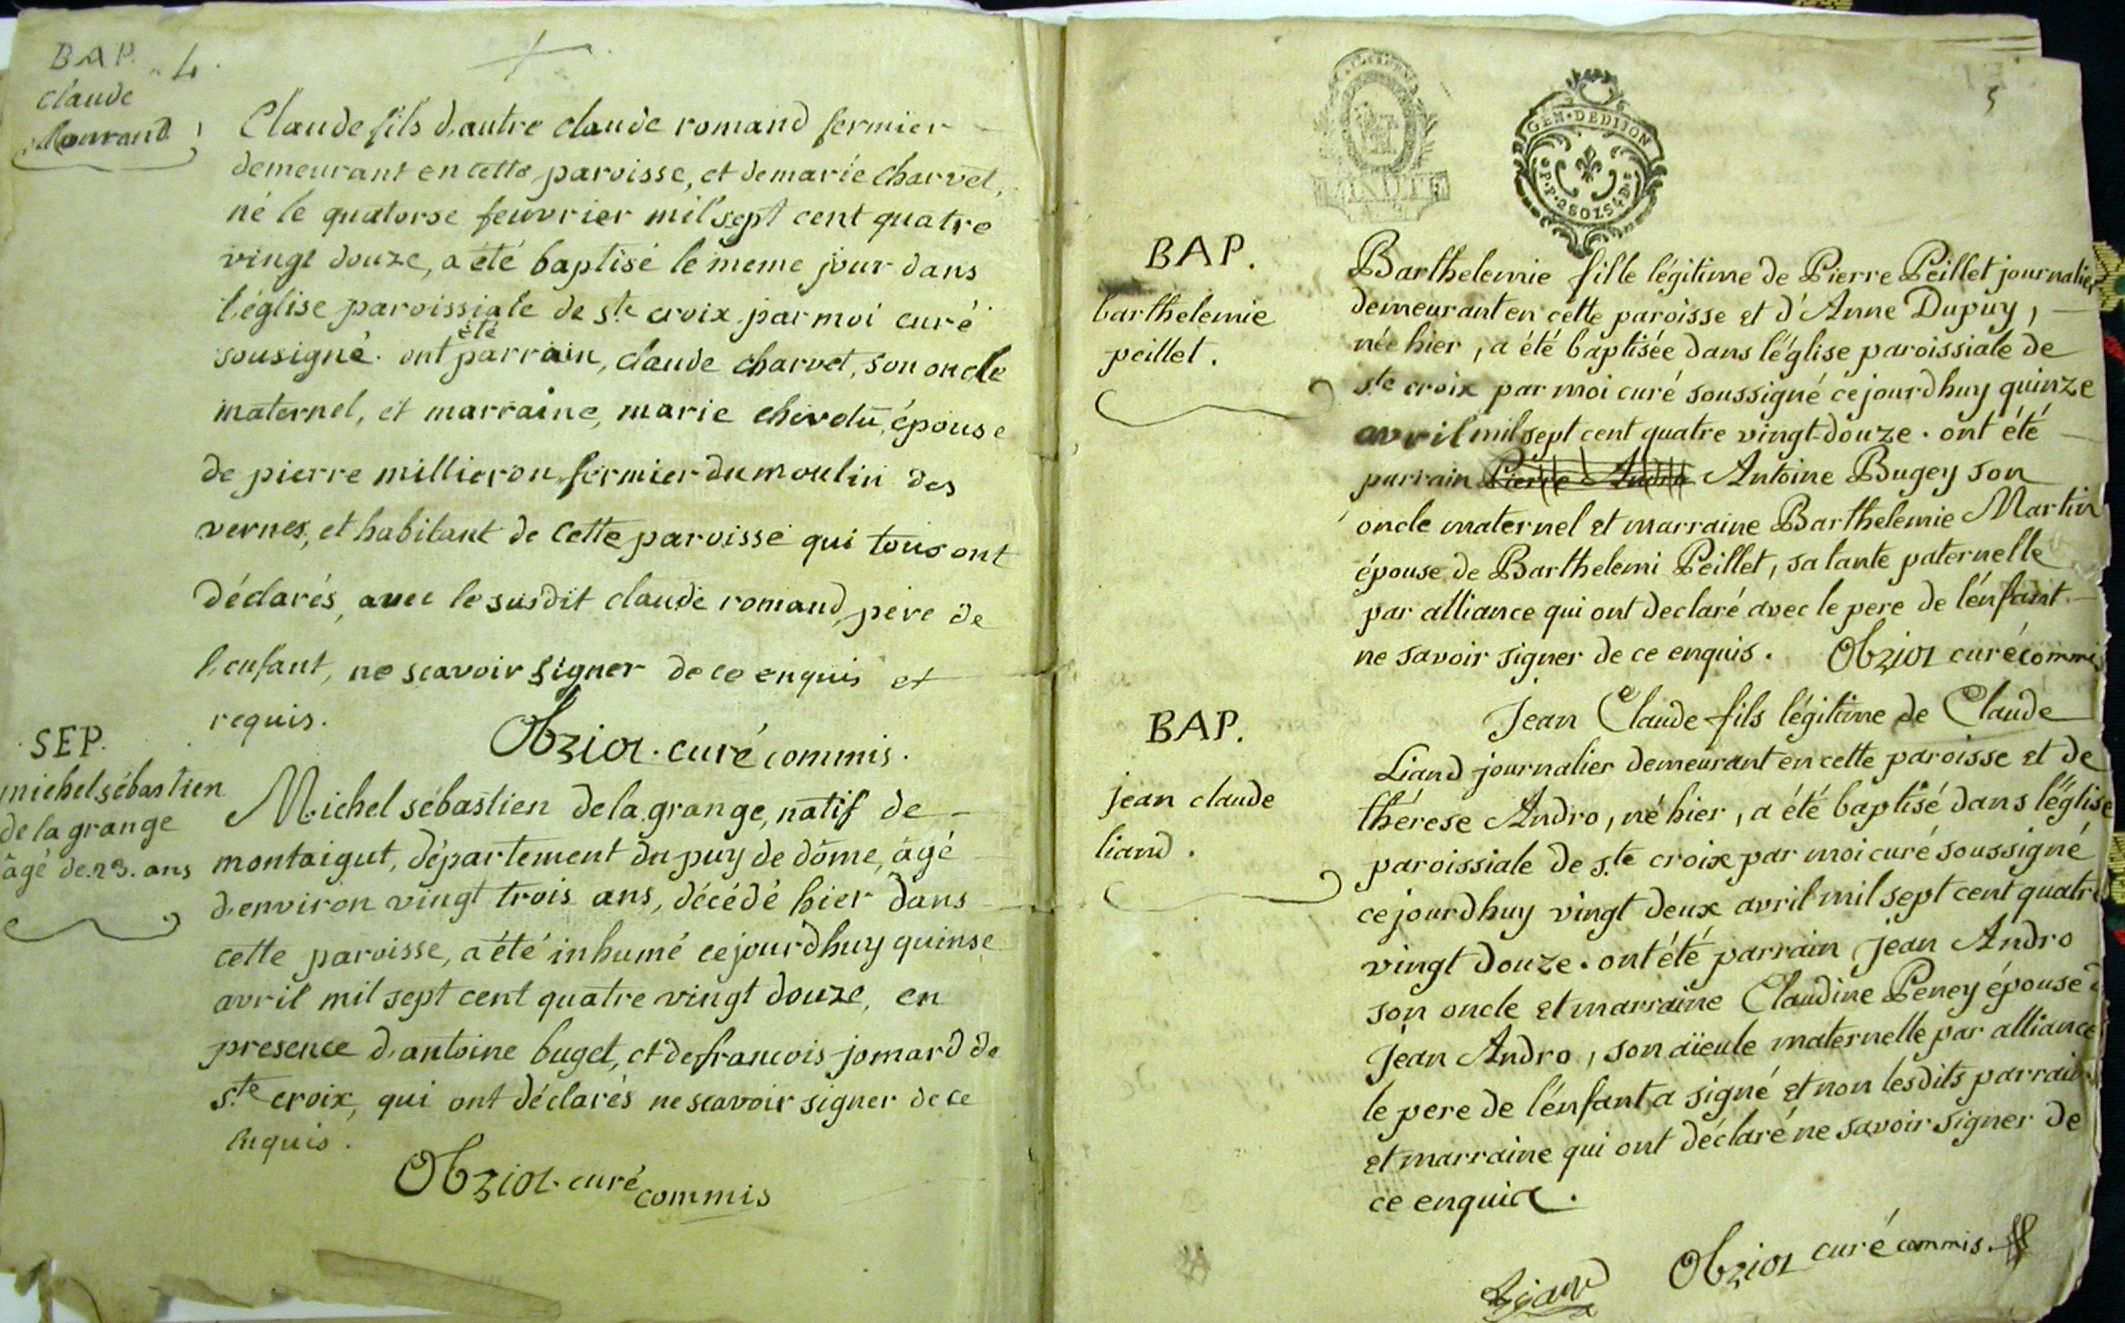 BAP. 4.
claude
Romand
Claude fils d'autre claude romand fermier
demeurant en cette paroisse, et de marie charvet,
né le quatorse feuvrier mil sept cent quatre
vingt douze, a été baptisé le meme jour dans
l'église paroissiale de ste croix par moi curé
sousigné. ont été parrain, claude charvet, son oncle
maternel, et marraine, marie épouse
de pierre millieron fermier du moulin des
vernes, et habitant de cette paroisse qui tous ont
déclarés, avec le susdit claude romand, père de
l'enfant, ne scavoir signer de ce enquis et
requis.
Obriot. curé commis.
SEP.
michel sébastien
de la grange
âgé de 23. ans
Michel sébastien de la grange, natif de
montaigut, département du puy de dôme, âgé
d'environ vingt trois ans, décédé hier dans
cette paroisse, a été inhumé ce jourdhuy quinse
avril mil sept cent quatre vingt douze, en
presence d'antoine buget, et de francois jomard de
ste croix, qui ont déclarés ne scavoir signer de ce
enquis.
Obriot. curé commis
5
GEN. DE DIJON
2 SOLS 4 D.
BAP.
barthelemie
peillet.
Barthelemie fille légitime de Pierre Peillet journalier
demeurant en cette paroisse et d'Anne Dupuy,
née hier, a été baptisée dans l'église paroissiale de
ste croix par moi curé soussigné ce jourdhuy quinze
avril mil sept cent quatre vingt-douze. ont été
parrain Pierre Andro Antoine Bugey son
oncle maternel et marraine Barthelemie Martin
épouse de Barthelemi Peillet, sa tante paternelle
par alliance qui ont declaré avec le pere de l'énfant
ne savoir signer de ce enquis. Obriot curé commis
BAP.
jean claude
liand.
Jean Claude fils légitime de Claude
Liand journalier demeurant en cette paroisse et de
thérese Andro, né hier, a été baptisé dans l'église
paroissiale de ste croix par moi curé soussigné
ce jourdhuy vingt deux avril mil sept cent quatre
vingt douze. ont été parrain jean Andro
son oncle et marraine Claudine Peney épouse d
Jean Andro, son aïeule maternelle par alliance
le pere de l'énfant a signé et non lesdits parrain
et marraine qui ont déclaré ne savoir signer de
ce enquis.
Liand Obriot curé commis.